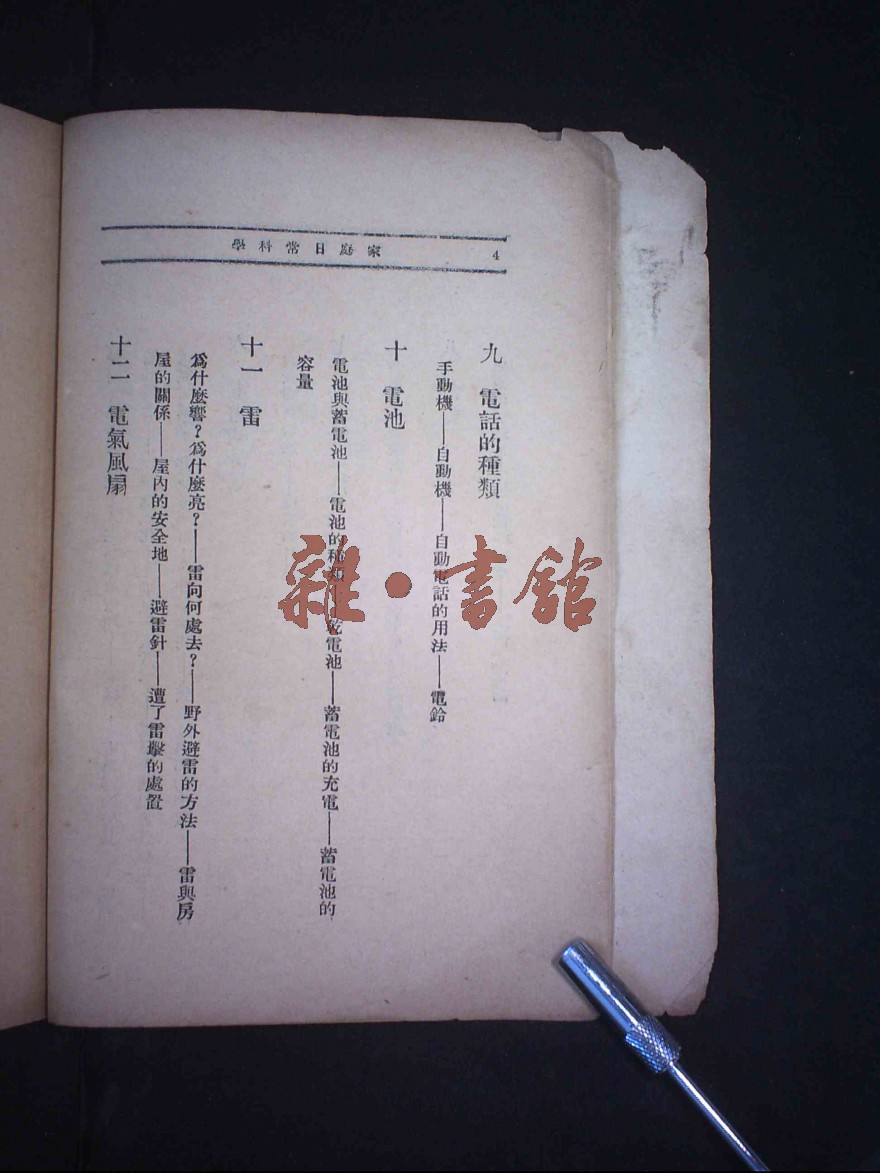 家庭日常科學
4
九 電話的種類
手動機——自動機——自動電話的用法——電鈴
十 電池
電池與蓄電池——電池的種類——乾電池——蓄電池的充電——蓄電池的
容量
十一 雷
爲什麼響？爲什麼亮？——雷向何處去？——野外避雷的方法——雷與房
屋的關係——屋內的安全地——避雷針——遭了雷擊的處置
十二 電氣風扇
雜·書館